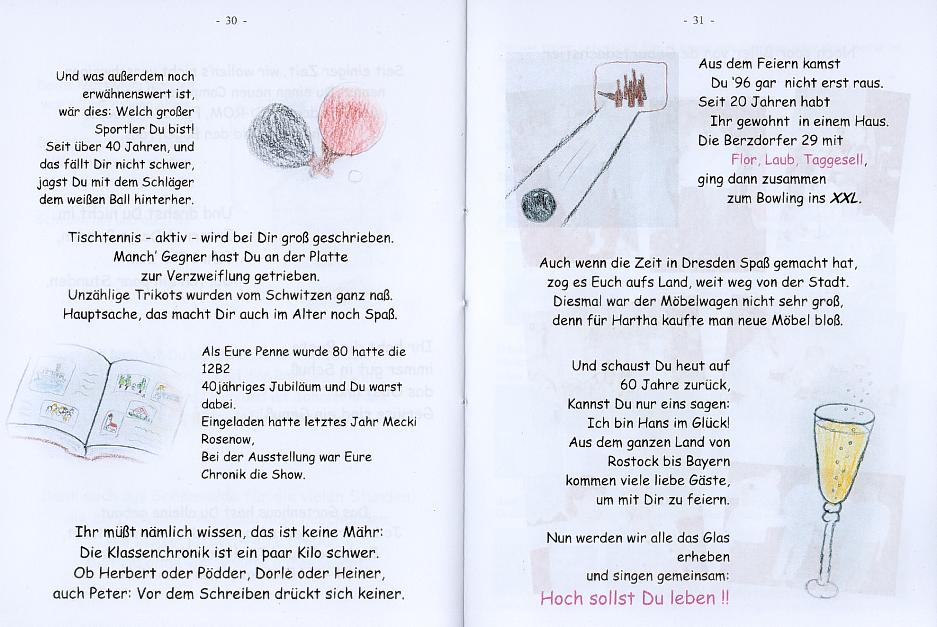 - 30 -
Und was außerdem noch
erwähnenswert ist,
wär dies: Welch großer
Sportler Du bist!
Seit über 40 Jahren, und
das fällt Dir nicht schwer,
jagst Du mit dem Schläger
dem weißen Ball hinterher.
Tischtennis - aktiv - wird bei Dir groß geschrieben.
Manch’ Gegner hast Du an der Platte
zur Verzweiflung getrieben.
Unzählige Trikots wurden vom Schwitzen ganz naß.
Hauptsache, das macht Dir auch im Alter noch Spaß.
Als Eure Penne wurde 80 hatte die
12B2
40jähriges Jubiläum und Du warst
dabei.
Eingeladen hatte letztes Jahr Mecki
Rosenow,
Bei der Ausstellung war Eure
Chronik die Show.
Ihr müßt nämlich wissen, das ist keine Mähr:
Die Klassenchronik ist ein paar Kilo schwer.
Ob Herbert oder Pödder, Dorle oder Heiner,
auch Peter: Vor dem Schreiben drückt sich keiner.
- 31 -
Aus dem Feiern kamst
Du ‘96 gar nicht erst raus.
Seit 20 Jahren habt
Ihr gewohnt in einem Haus.
Die Berzdorfer 29 mit
Flor, Laub, Taggesell,
ging dann zusammen
zum Bowling ins XXL.
Auch wenn die Zeit in Dresden Spaß gemacht hat,
zog es Euch aufs Land, weit weg von der Stadt.
Diesmal war der Möbelwagen nicht sehr groß,
denn für Hartha kaufte man neue Möbel bloß.
Und schaust Du heut auf
60 Jahre zurück,
Kannst Du nur eins sagen:
Ich bin Hans im Glück!
Aus dem ganzen Land von
Rostock bis Bayern
kommen viele liebe Gäste,
um mit Dir zu feiern.
Nun werden wir alle das Glas
erheben
und singen gemeinsam:
Hoch sollst Du leben !!